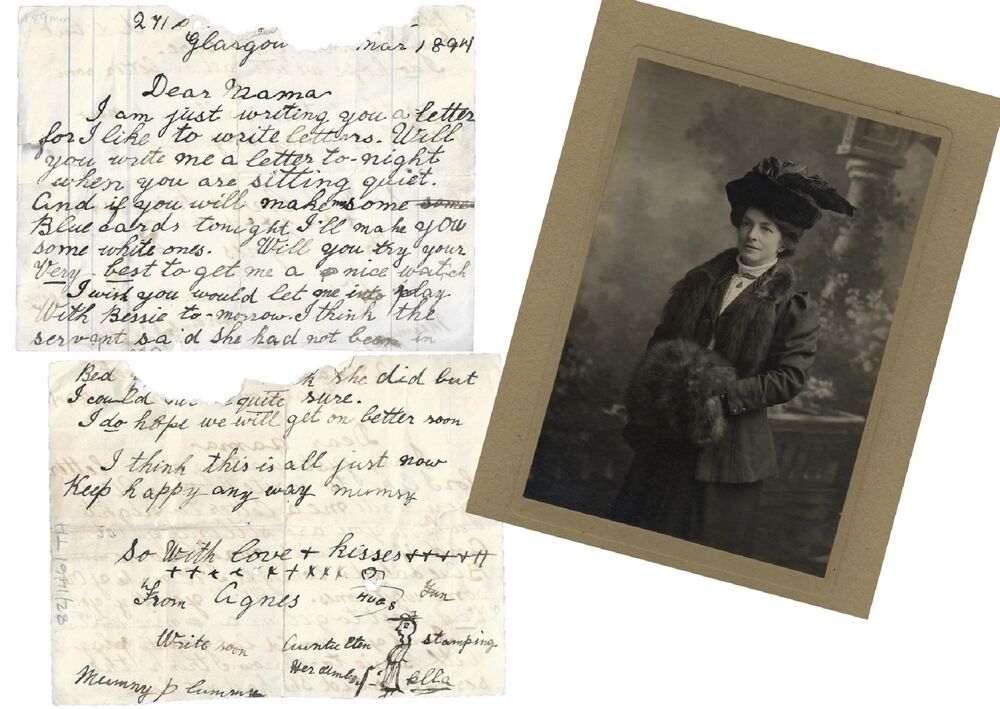 271
Glasgow Mar 1894
Dear Mama
I am just writing you a letter
for I like to write letters. Will
you write me a letter to-night
when you are sitting quiet.
And if you will make me some some
Blue cards tonight I'll make you
some white ones. Will you try your
Very best to get me a nice watch
I wish you would let me into play
With Bessie to-morrow. I think the
servant said she had not been in
Bed she did but
I could quite sure.
I do hope we will get on better soon
I think this is all just now
Keep happy any way mumsy
So With love + kisses ++++++
++++++++++
From Agnes
Hugs Fun
Write soon
stamping
Her
ella
Mummy
82/146/TH